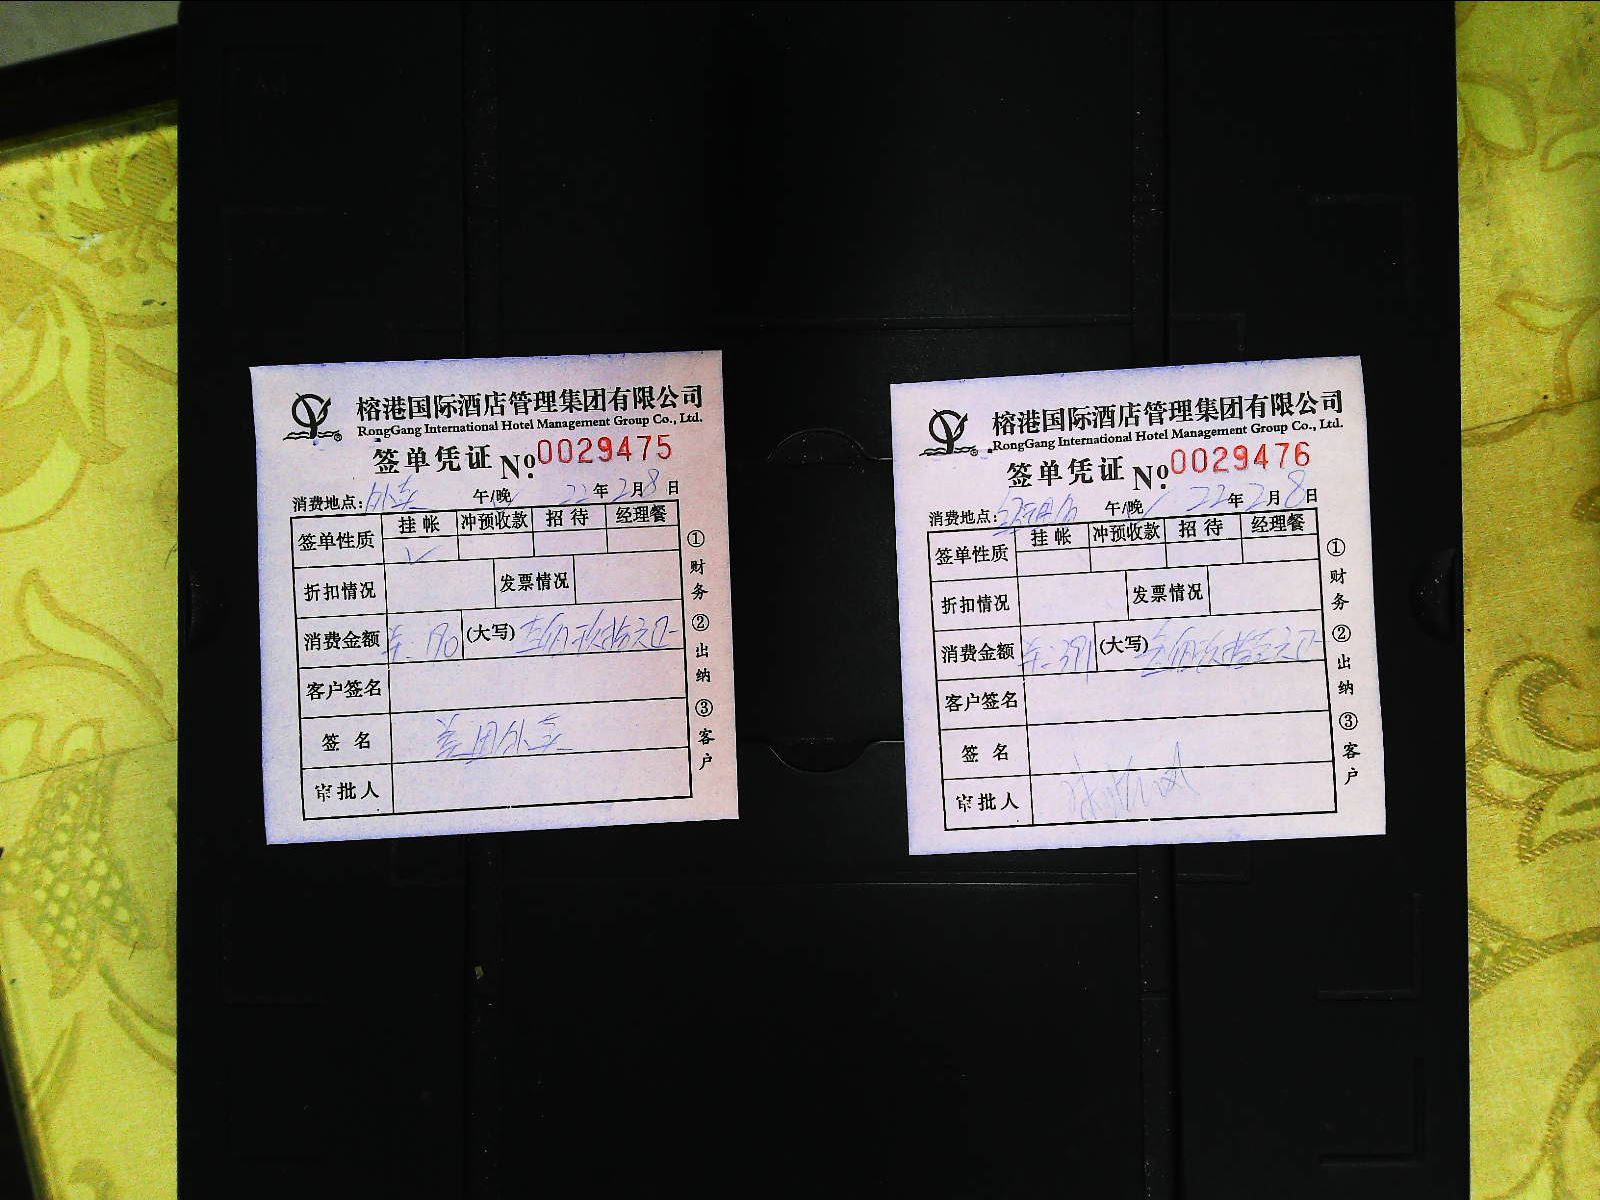 榕港国际酒店管理集团有限公司
RongGang International Hotel Management Group Co., Ltd.
签单凭证 No. 0029475
消费地点: 外卖 午/晚 22年2月8日
签单性质 挂帐 冲预收款 招待 经理餐
✓
折扣情况 发票情况
消费金额 (大写)
客户签名
签名 美团外卖
审批人
①财务 ②出纳 ③客户
榕港国际酒店管理集团有限公司
RongGang International Hotel Management Group Co., Ltd.
签单凭证 No. 0029476
消费地点: 午/晚 22年2月8日
签单性质 挂帐 冲预收款 招待 经理餐
折扣情况 发票情况
消费金额 (大写)
客户签名
签名
审批人
①财务 ②出纳 ③客户